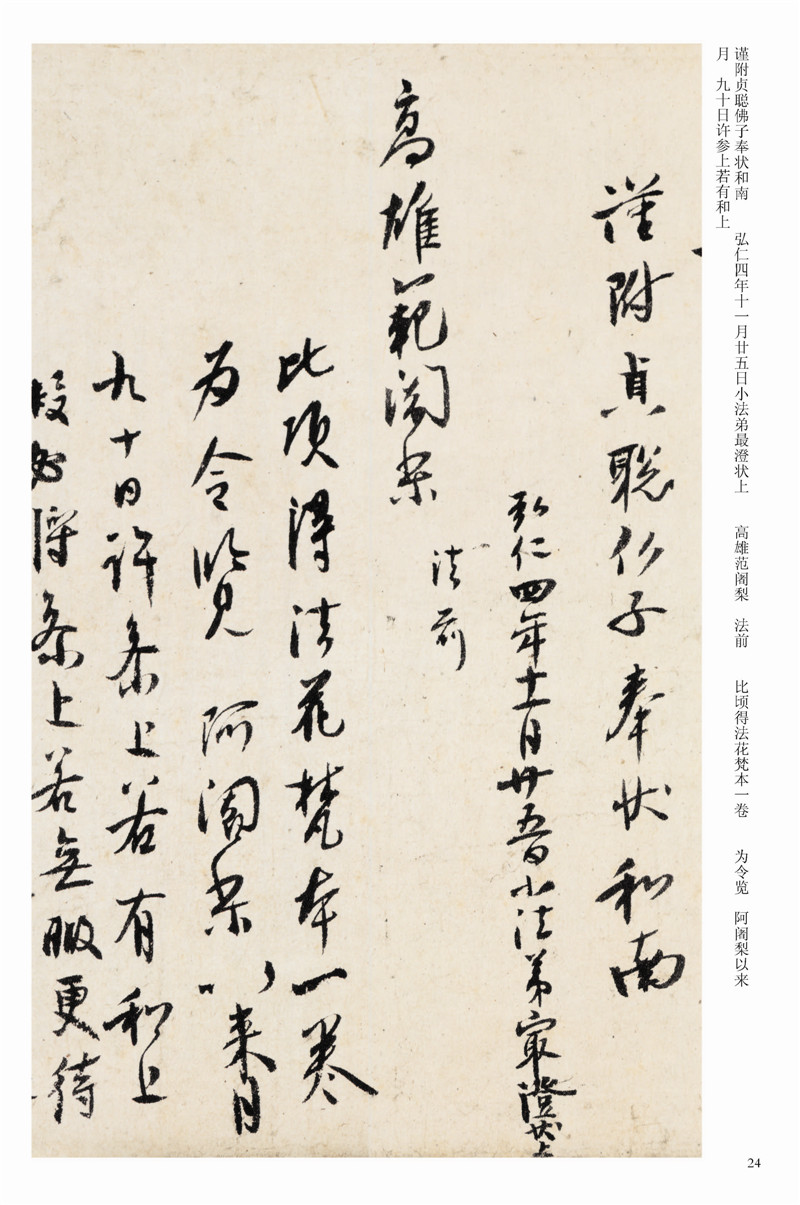 谨附贞聪佛子奉状和南　弘仁四年十一月廿五日小法弟最澄状上　高雄范阇梨　法前　比顷得法花梵本一卷　为令览　阿阇梨以来
月　九十日许参上若有和上
謹附貞聡仏子奉状和南
弘仁四年十一月廿五日小法弟最澄状上
高雄範闍梨
法前
比頃得法花梵本一巻
為令覧阿闍梨以来月
九十日許参上若有和上
暇必得参上若無暇更待
24